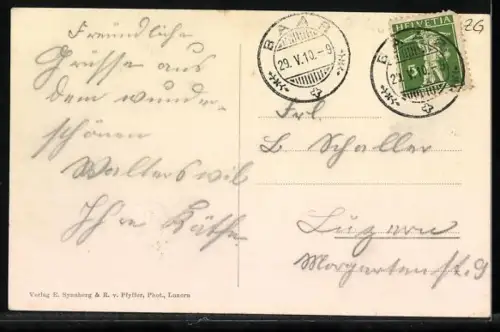 Freundliche
Grüsse aus
dem wunder-
schönen
Walterswil
Ihre Käthe
BAAR
29. V. 10. - 9
HELVETIA
5
BAAR
Frl.
L Schaller
Luzern
Morgartenst. 9
26
Verlag E. Synnberg & R. v. Pfyffer, Phot., Luzern